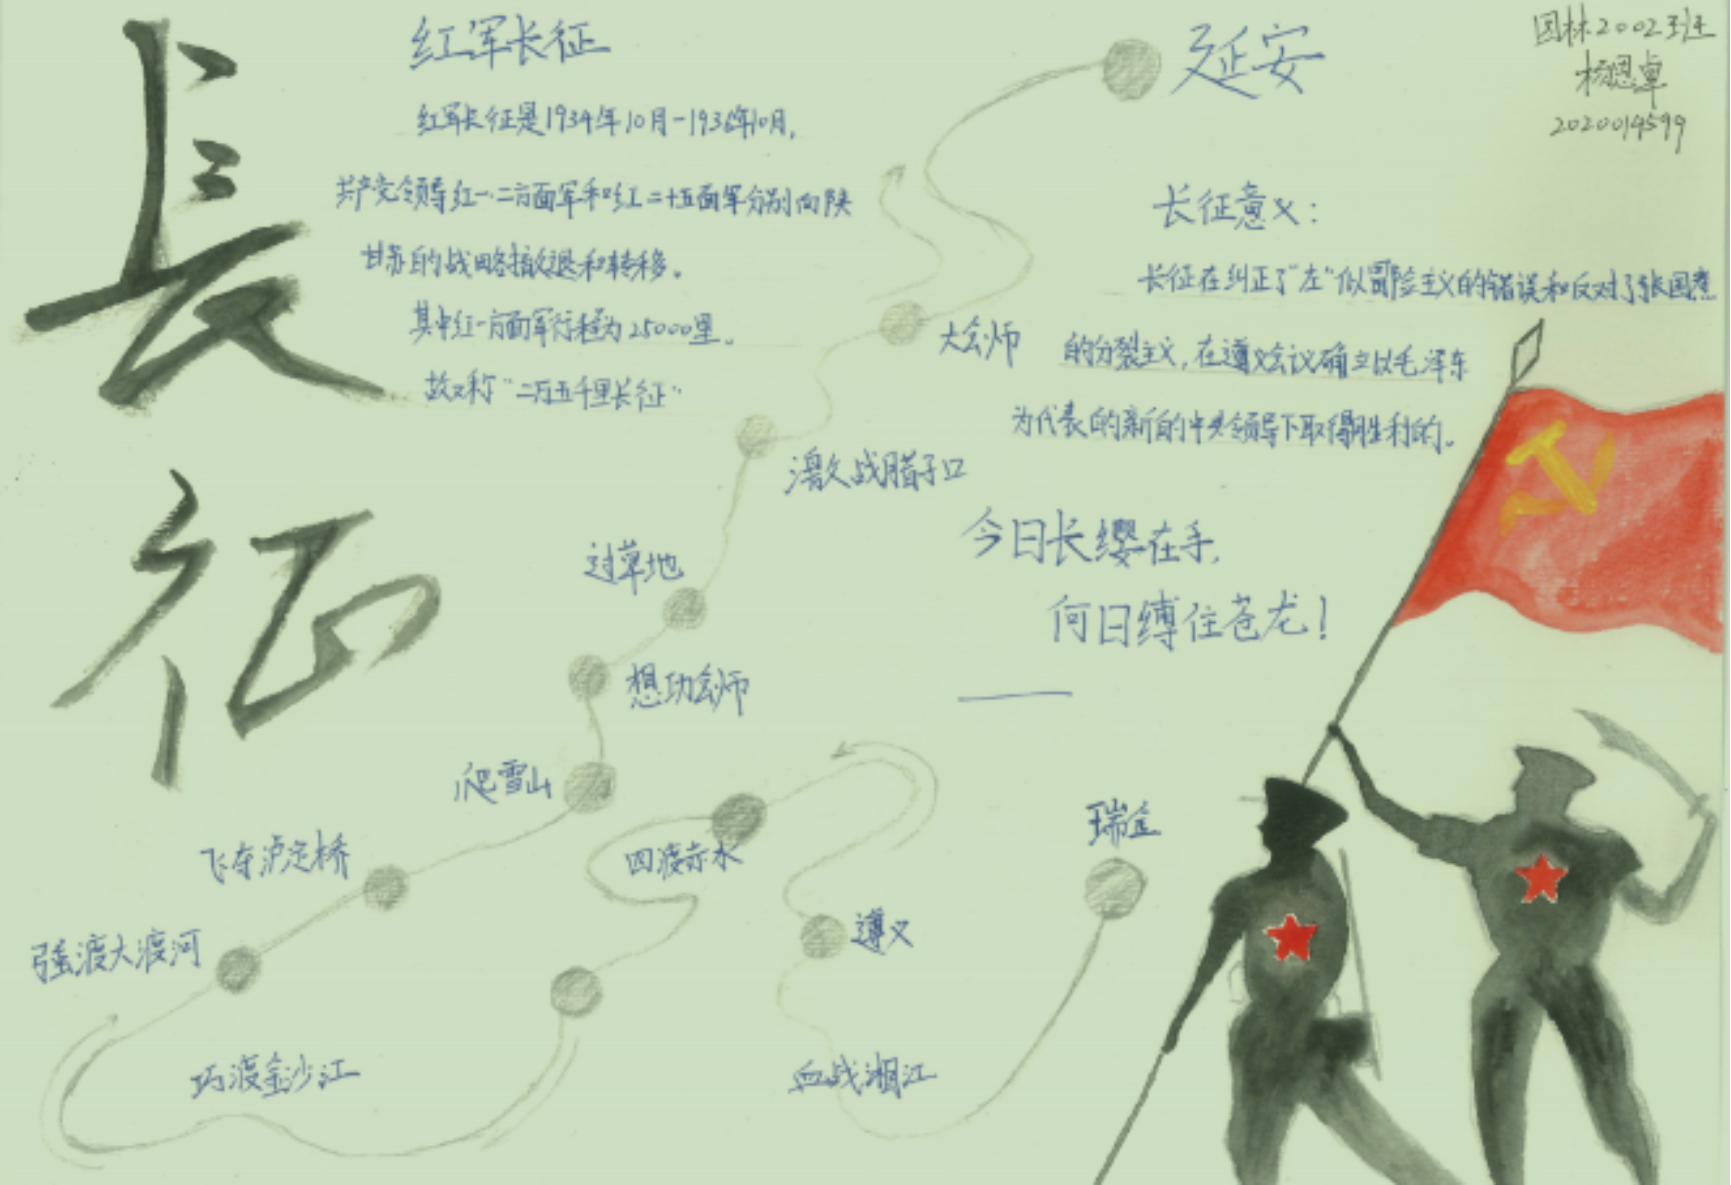 長征
红军长征
红军长征是1934年10月-1936年10月,
共产党领导红一·二方面军和红二十五面军分别向陕
甘苏的战略撤退和转移。
其中红一方面军行程为25000里。
故又称“二万五千里长征”
延安
园林2002班
杨恩卓
2020014599
长征意义:
长征在纠正了“左”似冒险主义的错误和反对了张国焘
的分裂主义,在遵义会议确立以毛泽东
为代表的新的中央领导下取得胜利的。
大会师
激战腊子口
过草地
今日长缨在手,
何日缚住苍龙!
想功会师
爬雪山
瑞金
飞夺泸定桥
四渡赤水
遵义
强渡大渡河
巧渡金沙江
血战湘江